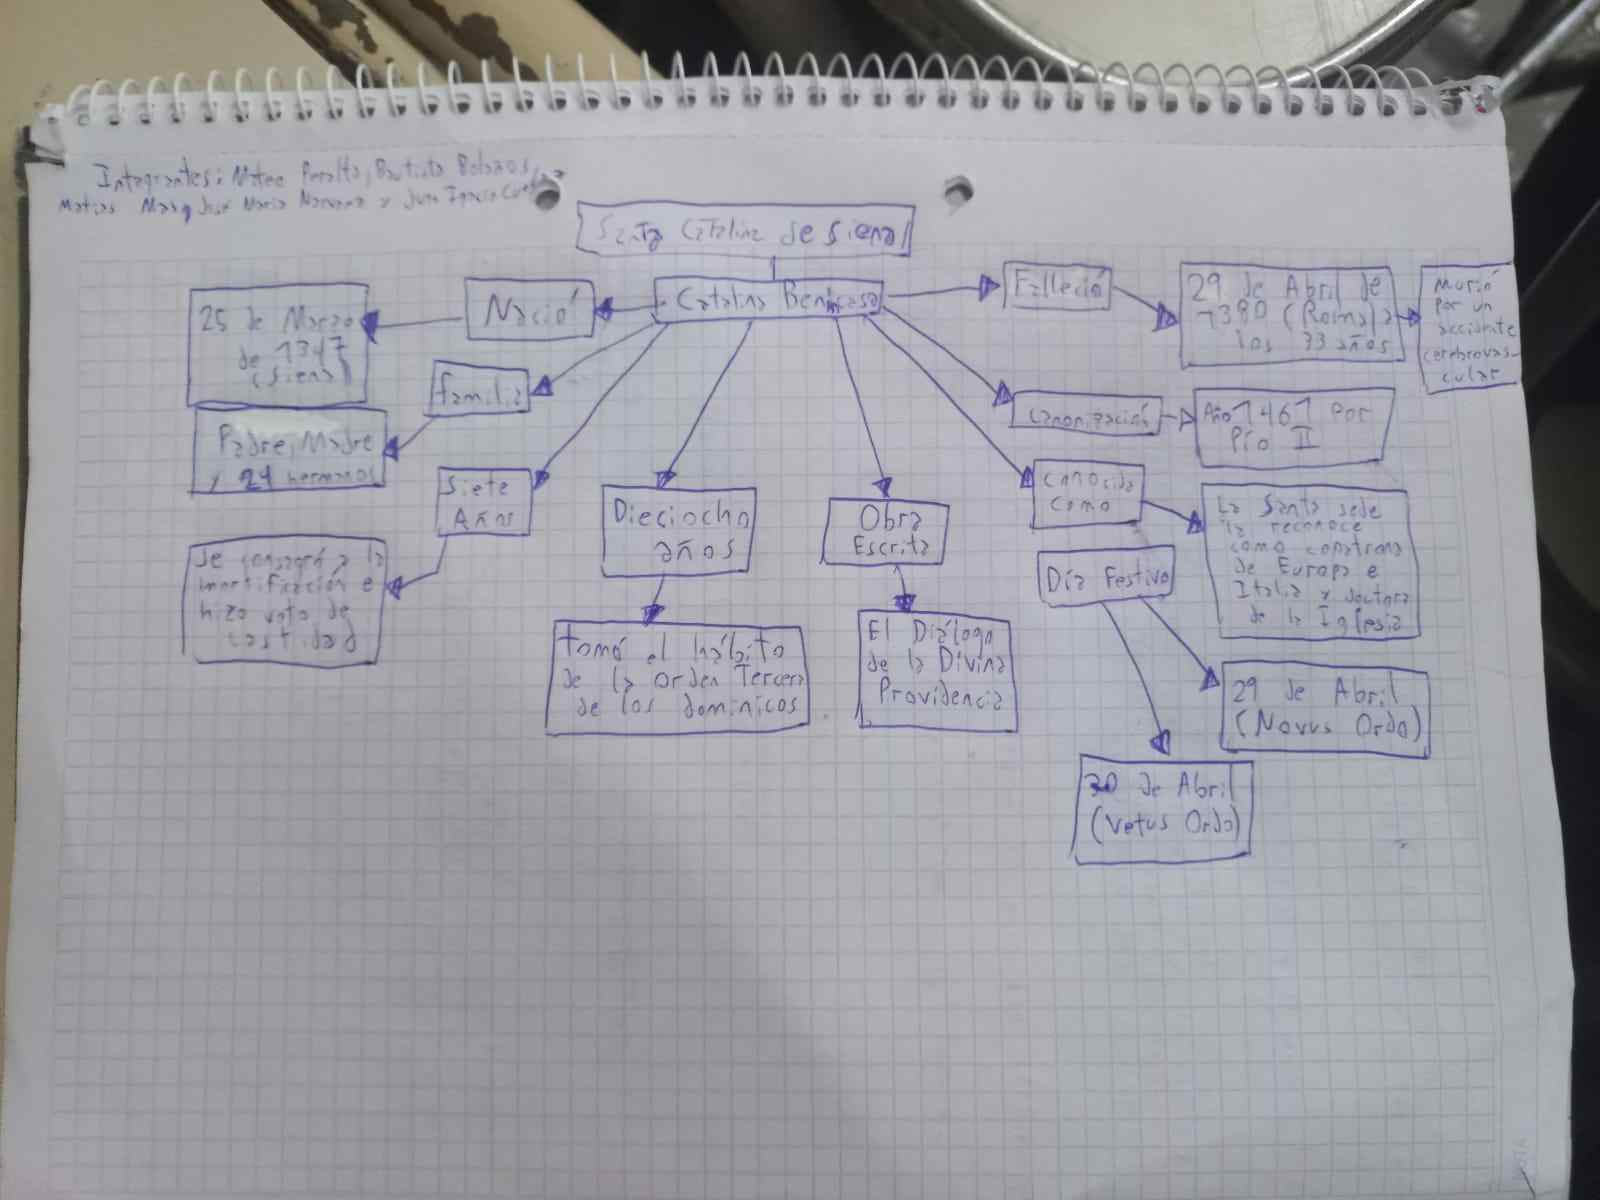 Integrantes: Mateo Peralta, Bautista Bolaños,
Matias José Maria y Juan Ignacio
Santa Catalina de Siena
Catalina Benincasa
Nació
25 de Marzo
de 1347
(Siena)
familia
Padre, Madre
y 24 hermanos
Siete
Años
Se consagró a la
mortificación e
hizo voto de
castidad
Dieciocho
años
tomó el hábito
de la orden Tercera
de los dominicos
Obra
Escrita
El Diálogo
de la Divina
Providencia
Falleció
29 de Abril de
1380 (Roma) a
los 33 años
Murió
por un
accidente
cerebrovas-
cular
Canonización
Año 1461 por
Pío II
conocida
como
La Santa sede
la reconoce
como
de Europa e
Italia y doctora
de la Iglesia
Día Festivo
29 de Abril
(Novus Ordo)
30 de Abril
(Vetus Ordo)